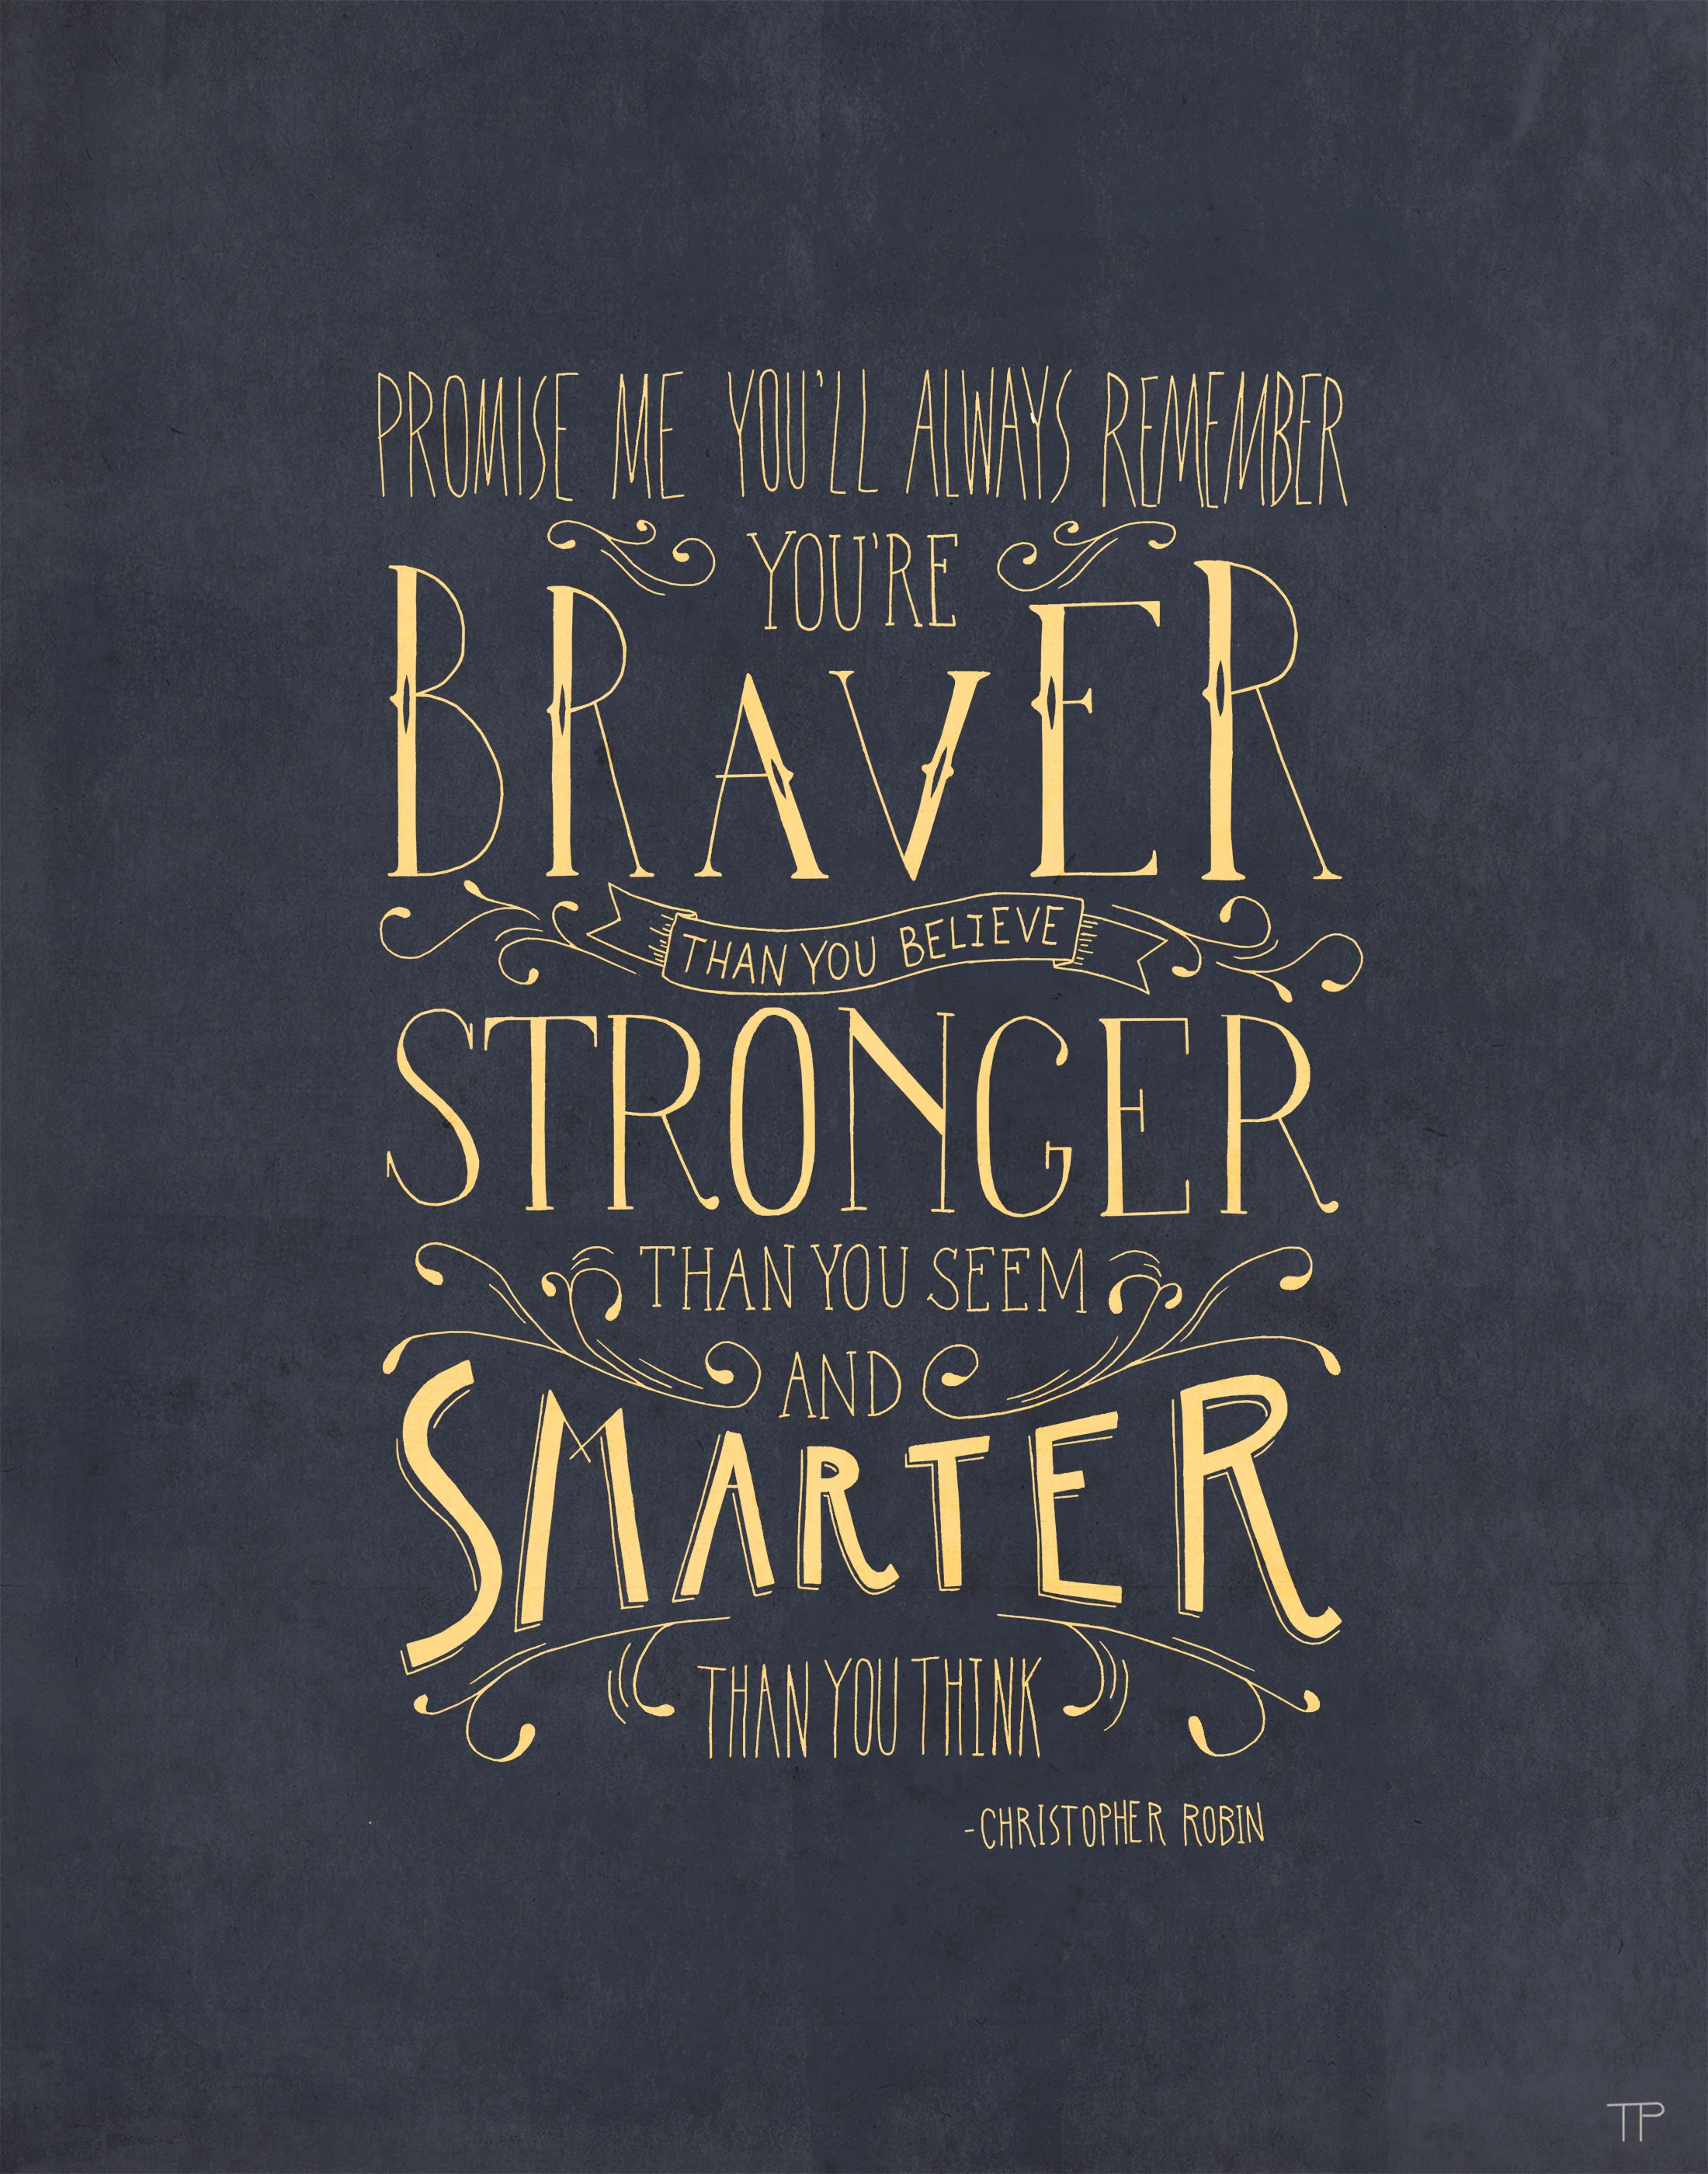 PROMISE ME YOU'LL ALWAYS REMEMBER
YOU'RE
BRAVER
THAN YOU BELIEVE
STRONGER
THAN YOU SEEM
AND
SMARTER
THAN YOU THINK
-CHRISTOPHER ROBIN
TP